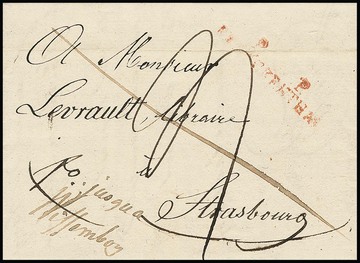 A Monsieur
P. P.
Levrault libraire
à
Strasbourg
po jusqua
Wissembg